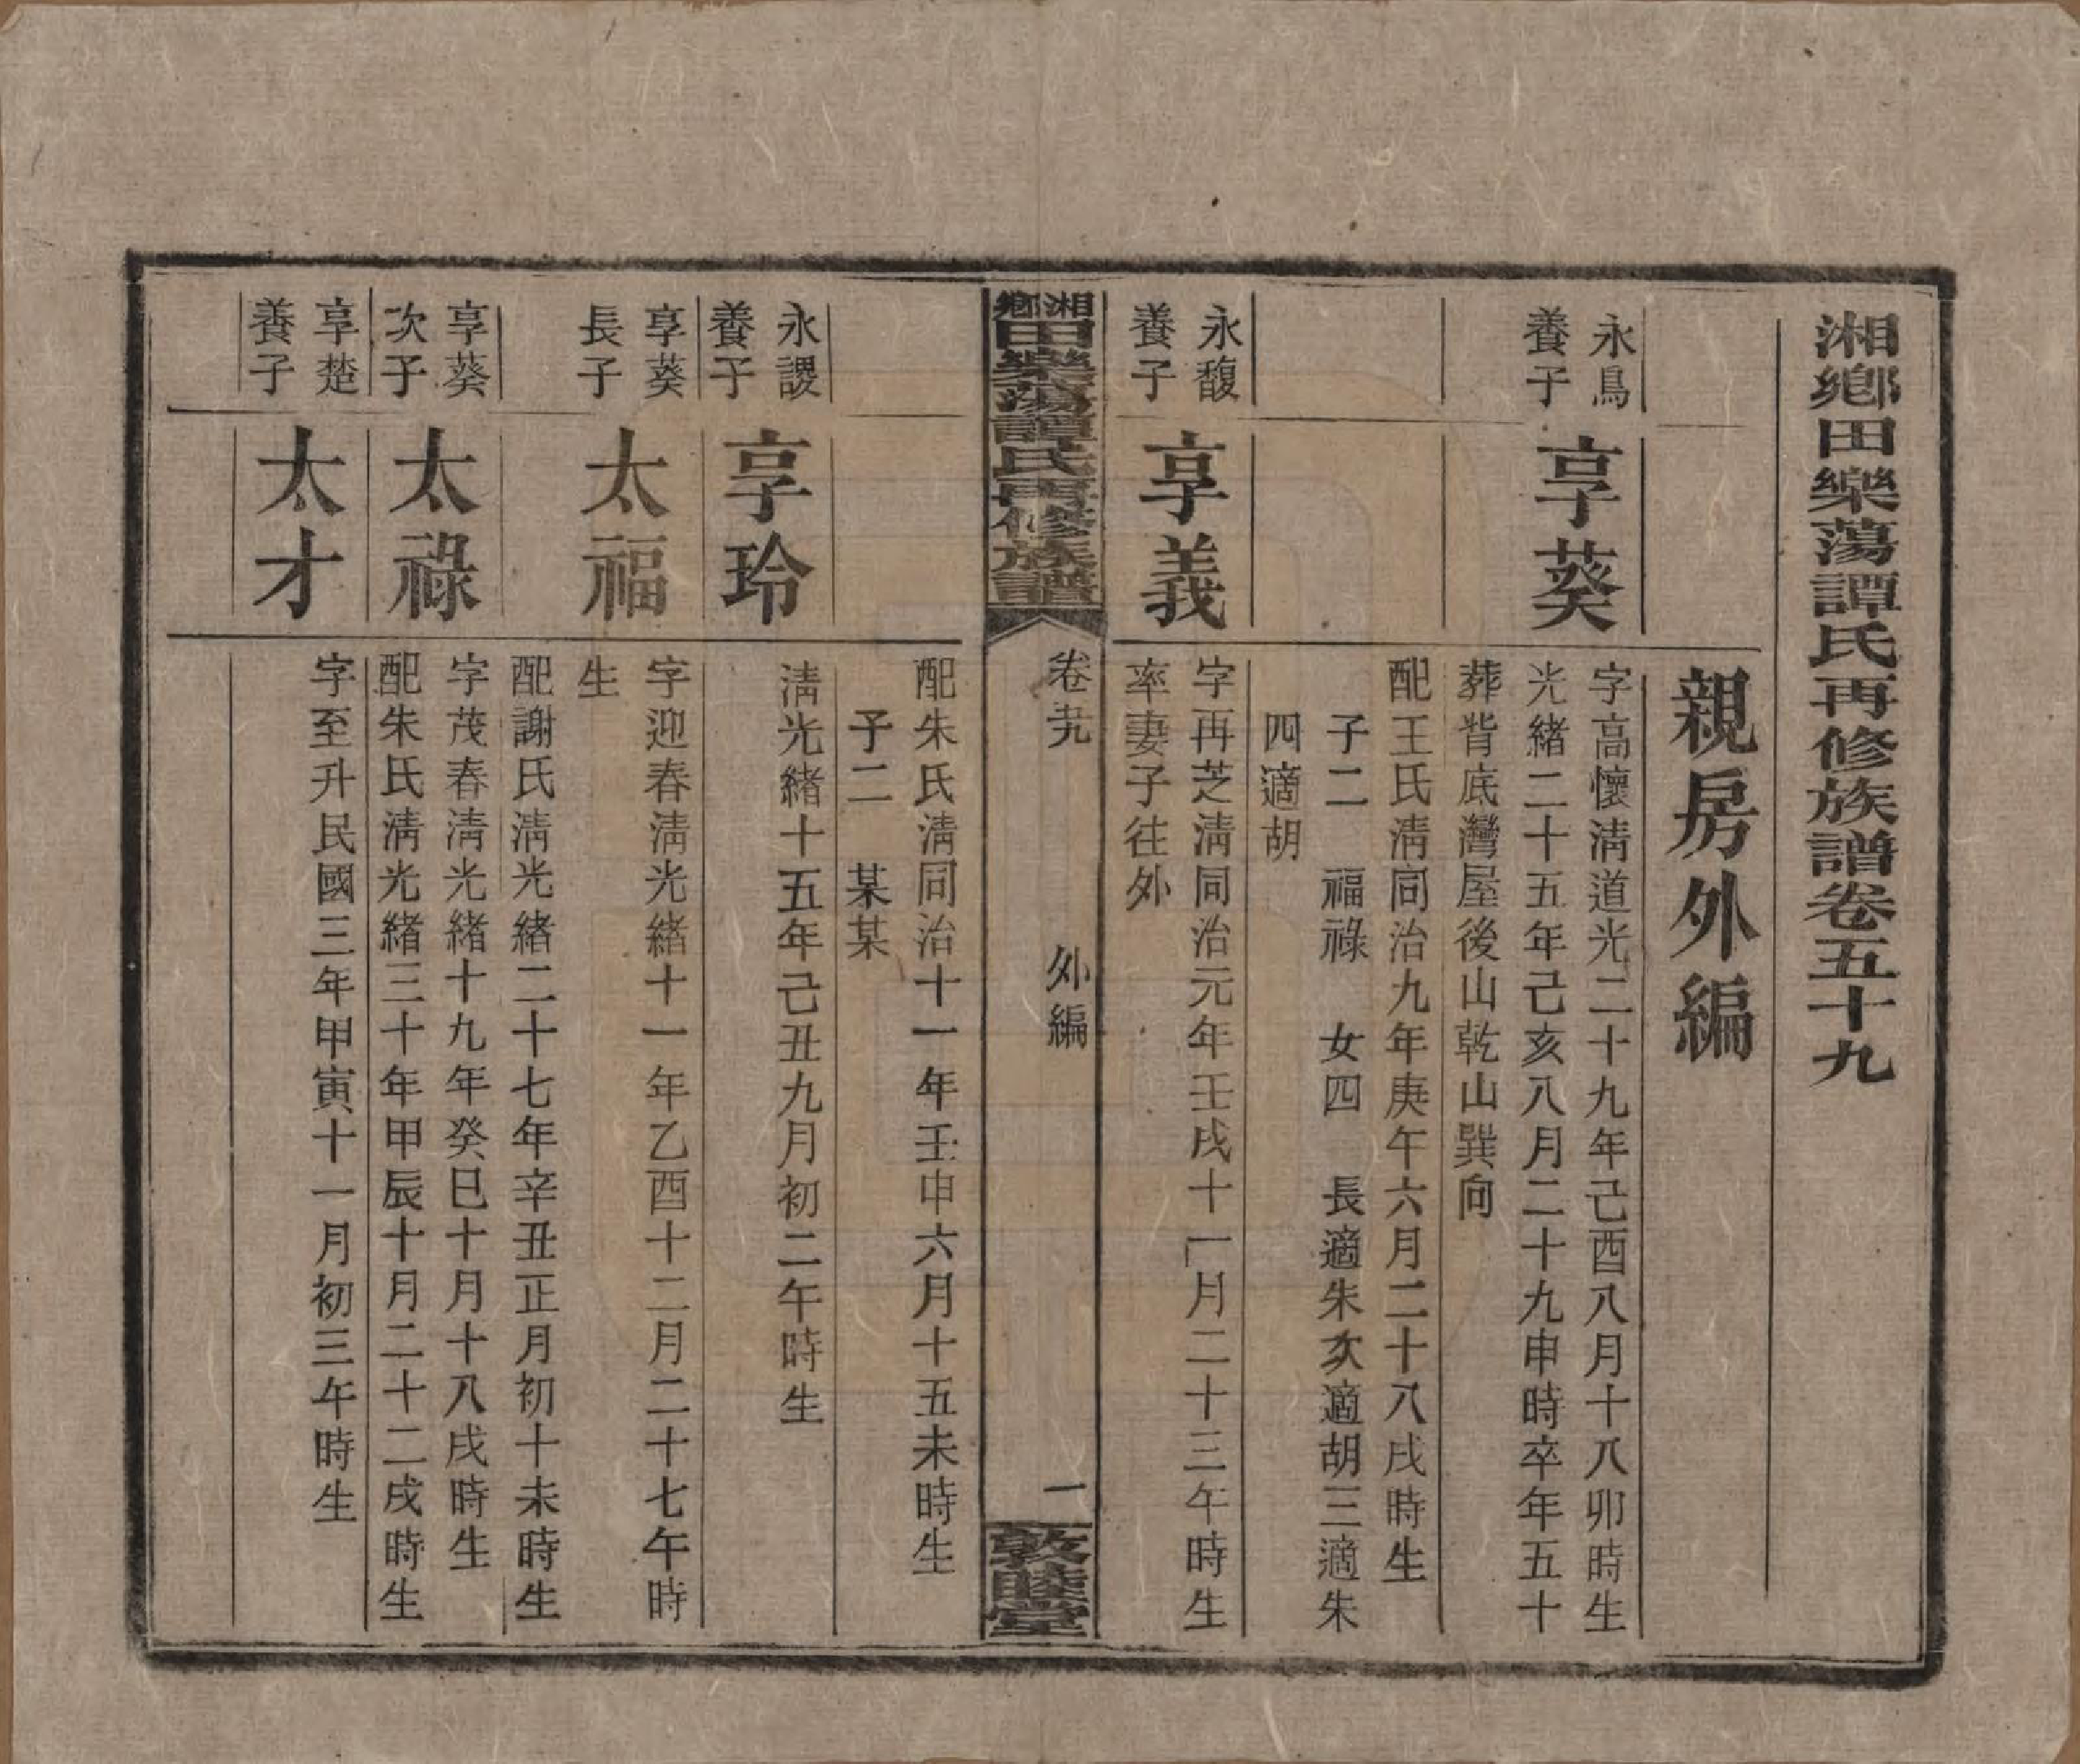 湘鄉田樂蕩譚氏再修族譜卷五十九
親房外編
永鳥
養子
享葵
字高懷淸道光二十九年己酉八月十八卯時生
光緒二十五年己亥八月二十九申時卒年五十
葬背底灣屋後山乾山巽向
配王氏淸同治九年庚午六月二十八戌時生
子二 福祿 女四 長適朱次適胡三適朱
四適胡
永馥
養子
享義
字再芝淸同治元年壬戌十一月二十三午時生
率妻子往外
湘鄉田樂蕩譚氏再修族譜
卷五九
外編
一
敦睦堂
配朱氏淸同治十一年壬申六月十五未時生
子二 某某
永謖
養子
享玲
淸光緒十五年己丑九月初二午時生
享葵
長子
太福
字迎春淸光緒十一年乙酉十二月二十七午時
生
配謝氏淸光緒二十七年辛丑正月初十未時生
享葵
次子
太祿
字茂春淸光緒十九年癸巳十月十八戌時生
配朱氏淸光緒三十年甲辰十月二十二戌時生
享楚
養子
太才
字至升民國三年甲寅十一月初三午時生